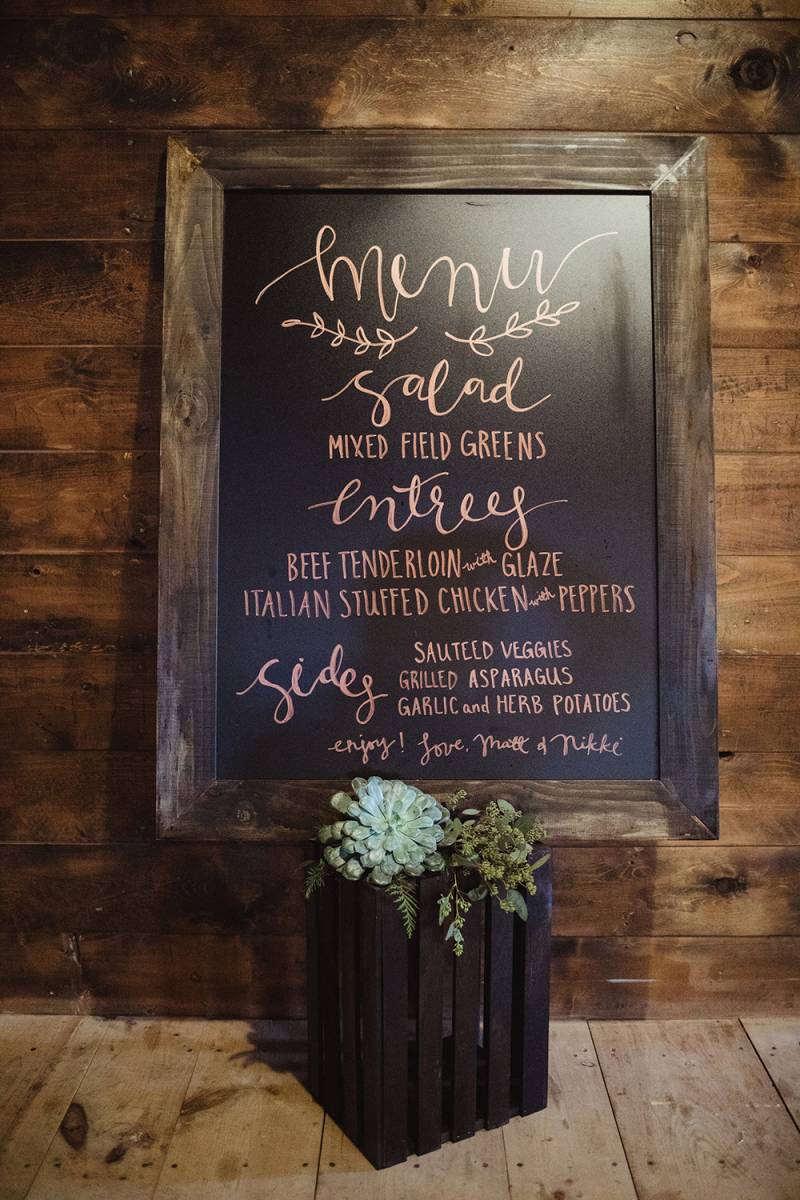 menu
salad
MIXED FIELD GREENS
entrees
BEEF TENDERLOIN with GLAZE
ITALIAN STUFFED CHICKEN with PEPPERS
sides
SAUTEED VEGGIES
GRILLED ASPARAGUS
GARLIC and HERB POTATOES
enjoy! Love, Matt & Nikki